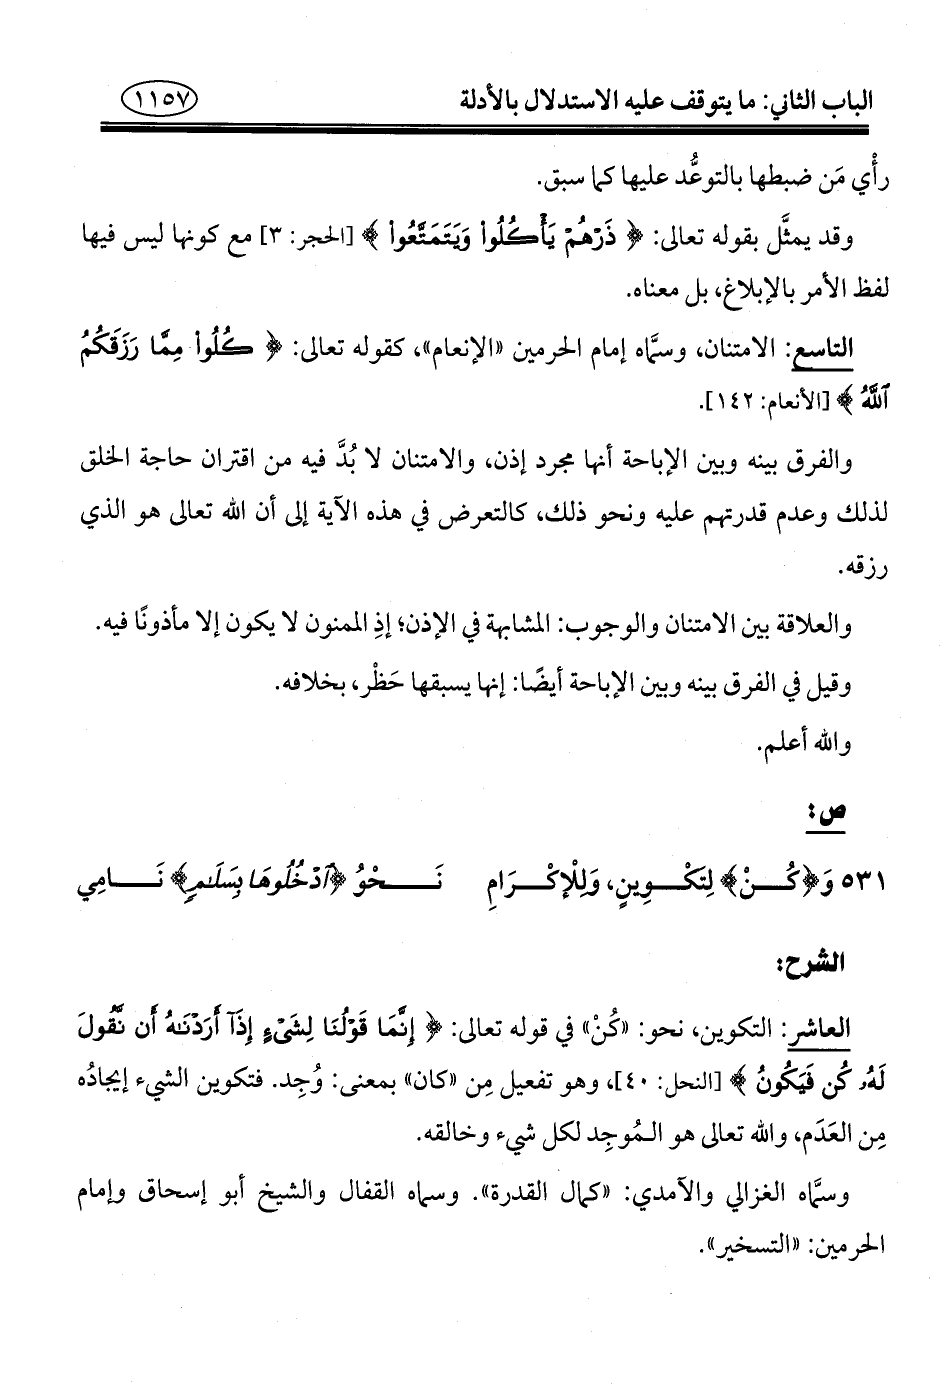 الباب الثاني: ما يتوقف عليه الاستدلال بالأدلة ١١٥٧
رأْي مَن ضبطها بالتوعُّد عليها كما سبق.
وقد يمثَّل بقوله تعالى: ﴿ ذَرْهُمْ يَأْكُلُوا۟ وَيَتَمَتَّعُوا۟ ﴾ [الحجر: ٣] مع كونها ليس فيها
لفظ الأمر بالإبلاغ، بل معناه.
التاسع: الامتنان، وسمَّاه إمام الحرمين «الإنعام»، كقوله تعالى: ﴿ كُلُوا۟ مِمَّا رَزَقَكُمُ
ٱللَّهُ ﴾ [الأنعام: ١٤٢].
والفرق بينه وبين الإباحة أنها مجرد إذن، والامتنان لا بُدَّ فيه من اقتران حاجة الخلق
لذلك وعدم قدرتهم عليه ونحو ذلك، كالتعرض في هذه الآية إلى أن الله تعالى هو الذي
رزقه.
والعلاقة بين الامتنان والوجوب: المشابهة في الإذن؛ إذِ الممنون لا يكون إلا مأذونًا فيه.
وقيل في الفرق بينه وبين الإباحة أيضًا: إنها يسبقها حَظْر، بخلافه.
والله أعلم.
ص:
٥٣١ وَ﴿كُـــنْ﴾ لِتَكْـوِينٍ، وَلِلْإِكْـرَامِ نَـــحْوُ ﴿ٱدْخُلُوهَا بِسَلَٰمٍ﴾ نَـــامِي
الشرح:
العاشر: التكوين، نحو: «كُنْ» في قوله تعالى: ﴿ إِنَّمَا قَوْلُنَا لِشَىْءٍ إِذَآ أَرَدْنَٰهُ أَن نَّقُولَ
لَهُۥ كُن فَيَكُونُ ﴾ [النحل: ٤٠]، وهو تفعيل مِن «كان» بمعنى: وُجِد. فتكوين الشيء إيجادُه
مِن العَدَم، والله تعالى هو الـمُوجِد لكل شيء وخالقه.
وسمَّاه الغزالي والآمدي: «كمال القدرة». وسماه القفال والشيخ أبو إسحاق وإمام
الحرمين: «التسخير».